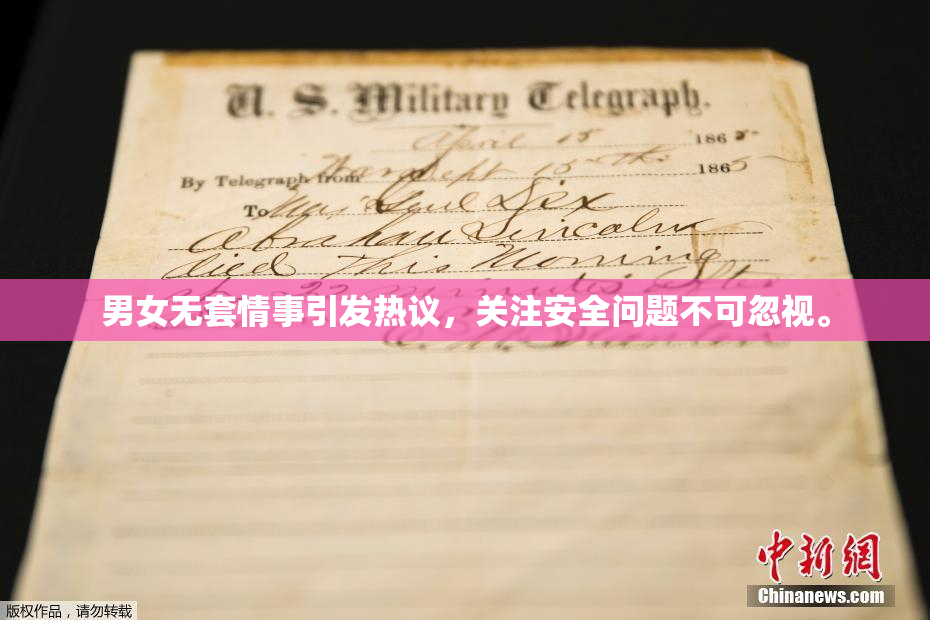 U. S. Military Telegraph.
April 15 1865
By Telegraph from War Dept 15th 1865
To Maj Genl Dix
Abraham Lincoln
died This Morning
22 minutes after
男女无套情事引发热议，关注安全问题不可忽视。
E. M. Stanton
中新网
Chinanews.com
版权作品，请勿转载